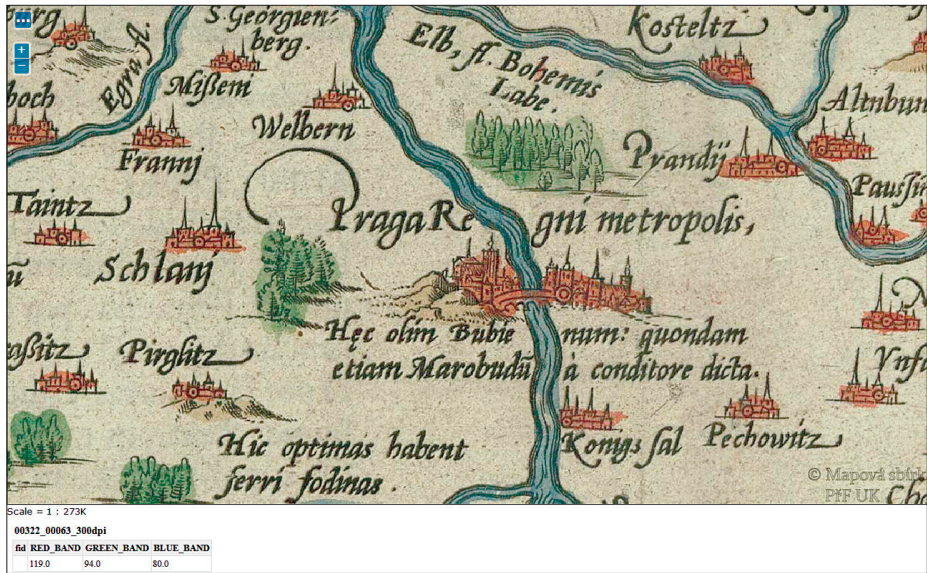 S. Georgien⸗
berg.
Egra fl.
Mißeni
Elb, fl. Bohemis
Labe.
Kosteltz
Welbern
Frannj
Altnbun
Prandij
Taintz
Praga Regni metropolis,
Schlanj
Hęc olim Bubienum: quondam
etiam Marobudū à conditore dicta.
Pirglitz
Hic optimas habent
ferri fodinas.
Konigs sal
Pechowitz
© Mapová sbírk
PřF UK
Scale = 1 : 273K
00322_00063_300dpi
fid RED_BAND GREEN_BAND BLUE_BAND
119.0 94.0 80.0